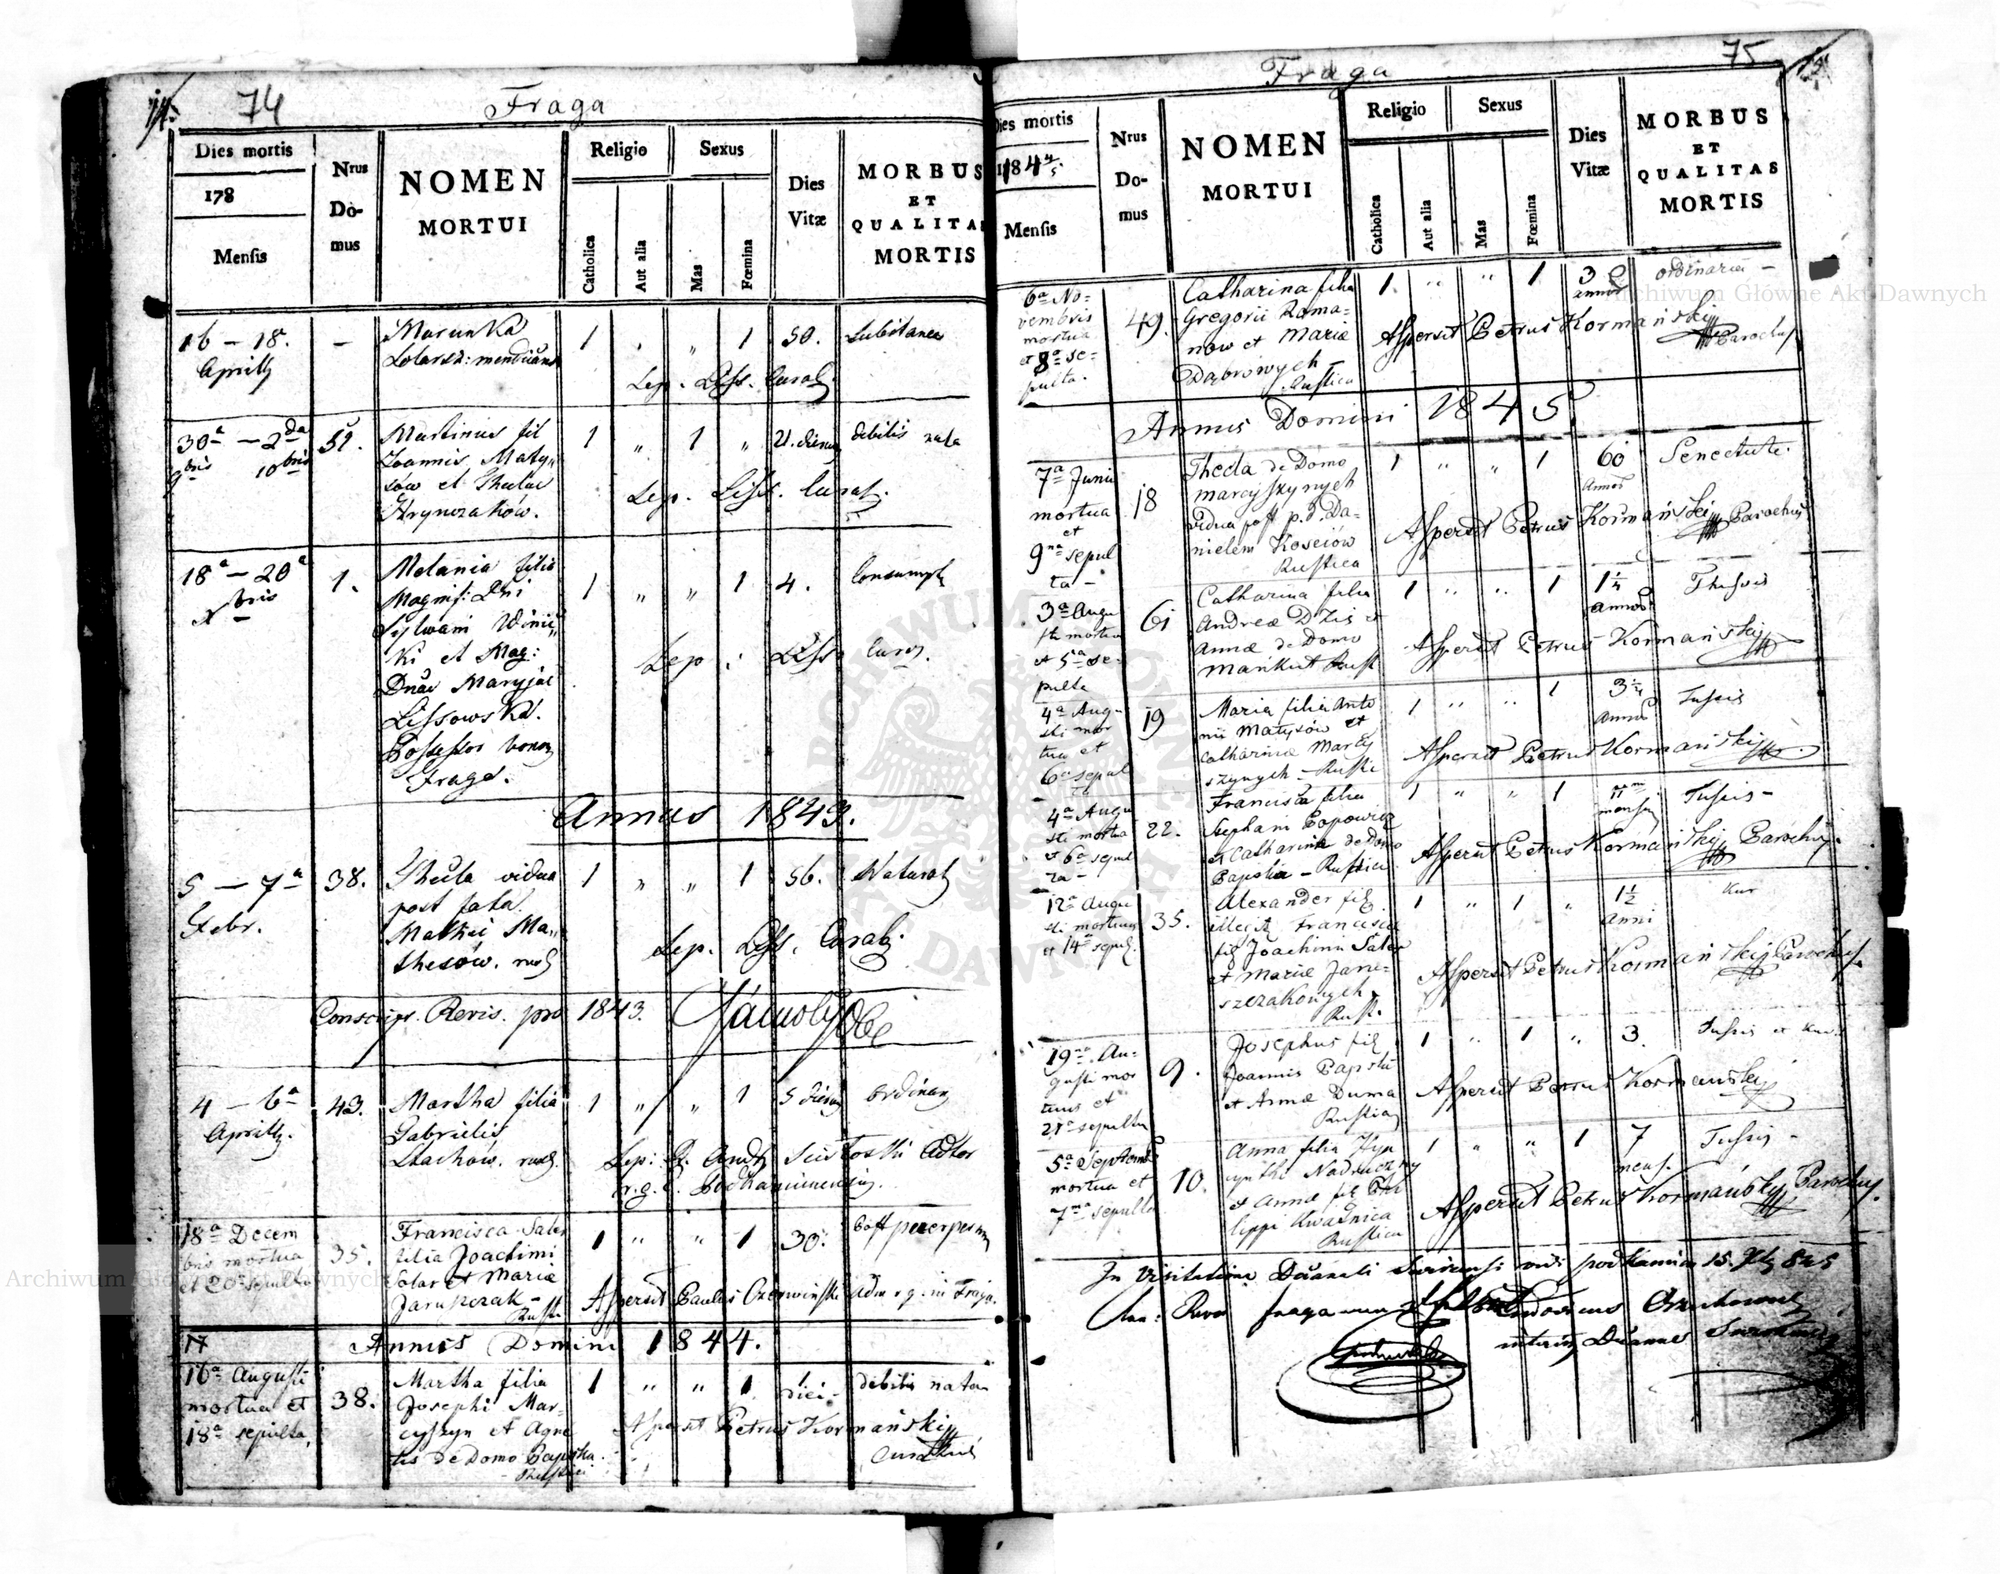 74
Fraga
Dies mortis
178
Mensis
Nrus
Do-
mus
NOMEN
MORTUI
Religio
Catholica
Aut alia
Sexus
Mas
Fœmina
Dies
Vitæ
MORBUS
ET
QUALITAS
MORTIS
16 — 18.
Aprilis
—
Marunka
mendicans
1 „ „ 1 50.
Sep. Liss. Curat.
30a — 2da
9bris 10bris
51.
Martinus fil
Joannis Maty„
sów et Theclae
Hrynczaków.
1 „ 1 „ 21. dierum debilis nata
Sep. Liss. Curat.
18a — 20a
Xbris
1.
Melania filia
Magnif: Dni
Sylwani Winic„
ki et Mag:
Dnae Maryjae
Lissowska.
Possessor bonor
Fraga.
1 „ „ 1 4. Consumpt
Sep: Liss Curat.
Annus 1843.
5 — 7a
Febr.
38.
Thecla vidua
post fata
Mathei Ma„
thesów. rust
1 „ „ 1 56. Natural
Sep. Liss. Curat.
Conscrip. Revis. pro 1843.
4 — 6a
Aprilis.
43.
Martha filia
Gabrielis
Stachów. rust.
1 „ „ 1 5 dierum ordinar
Sep: Andr Sustoski Adtor
r. g. c. Podkaminensis.
18a Decem
bris mortua
et 20a sepulta
35.
Francisca Salar
filia Joachimi
Salar et Mariæ
Jaruszczak —
Rusti
1 „ „ 1 30. Post puerperium
Aspersit Paulus Czerwiński Adm r g. in Fraga.
Annus Domini 1844.
16a Augusti
mortua et
18a sepulta,
38.
Martha filia
Josephi Mar-
cyszyn et Agne
tis de Domo Papuka.
- Rustici
1 „ „ 1 1 diei — debilis nata
Aspersit Petrus Kormański
Curatus
75
Fraga
Dies mortis
1844/5.
Mensis
Nrus
Do-
mus
NOMEN
MORTUI
Religio
Catholica
Aut alia
Sexus
Mas
Fœmina
Dies
Vitæ
MORBUS
ET
QUALITAS
MORTIS
6a No-
vembris
mortua
et 8a se-
pulta.
49.
Catharina filia
Gregorii Roma-
now et Mariæ
Dąbrowych —
Rustica
1. „ „ 1 3
annos
ordinaria —
Aspersit Petrus Kormański Parochus
Annus Domini 1845.
7a Junii
mortua
et
9na sepul
ta —
18
Thecla de Domo
marcyszynych
vidua post p. d. Da-
nielem Kosciów
Rustica
1 „ „ 1 60
Annos
Senectute.
Aspersit Petrus Kormański Parochus
3a Augu
sti mortua
et 5a se-
pulta
61
Catharina filia
Andreæ Dzis et
Annæ de Domo
Markut Rust
1 „ „ 1 1 1/4
Annos
Thussis
Aspersit Petrus Kormański
4a Augu-
sti mor
tua et
6a sepul
ta
19
Maria filia Anto
nii Matysów et
Catharinæ Marcy
szynych — Rustic
1 „ „ 1 3 1/4
Annos
Tussis
Aspersit Petrus Kormański
4a Augu
sti mortua
et 6a sepul
ta —
22.
Francisca filia
Stephani Popowicz
et Catharinæ de Domo
Papuka — Rustici
1 „ „ 1 11m
mensi
Tussis —
Aspersit Petrus Kormański Parochus.
12a Augu
sti mortuus
et 14a sepul.
35.
Alexander fil
illegit Francisca
fil Joachimi Salar
et Mariæ Jaru-
szczakowych.
Rusti.
1 „ 1 „ 1 1/2
Anni
Aspersit Petrus Kormański Parochus.
19na Au-
gusti mor
tuus et
21a sepultus
9.
Josephus fil
Joannis Papuka
et Annæ Duma
Rustica
1 „ 1 „ 3. Tussis et
Aspersit Petrus Kormański
5a Septemb
mortua et
7ma sepulta
10.
Anna filia Hya
cynthi Nadruczny
et Annæ fil Phi
lippi Kwaśnica
Rustica
1 „ „ 1 7
mens.
Tussis —
Aspersit Petrus Kormański Parochus.
In Visitatione Decanali vidi podkamin 15. 845
Archiwum Główne Akt Dawnych
Archiwum Główne Akt Dawnych
ARCHIWUM GŁÓWNE AKT DAWNYCH